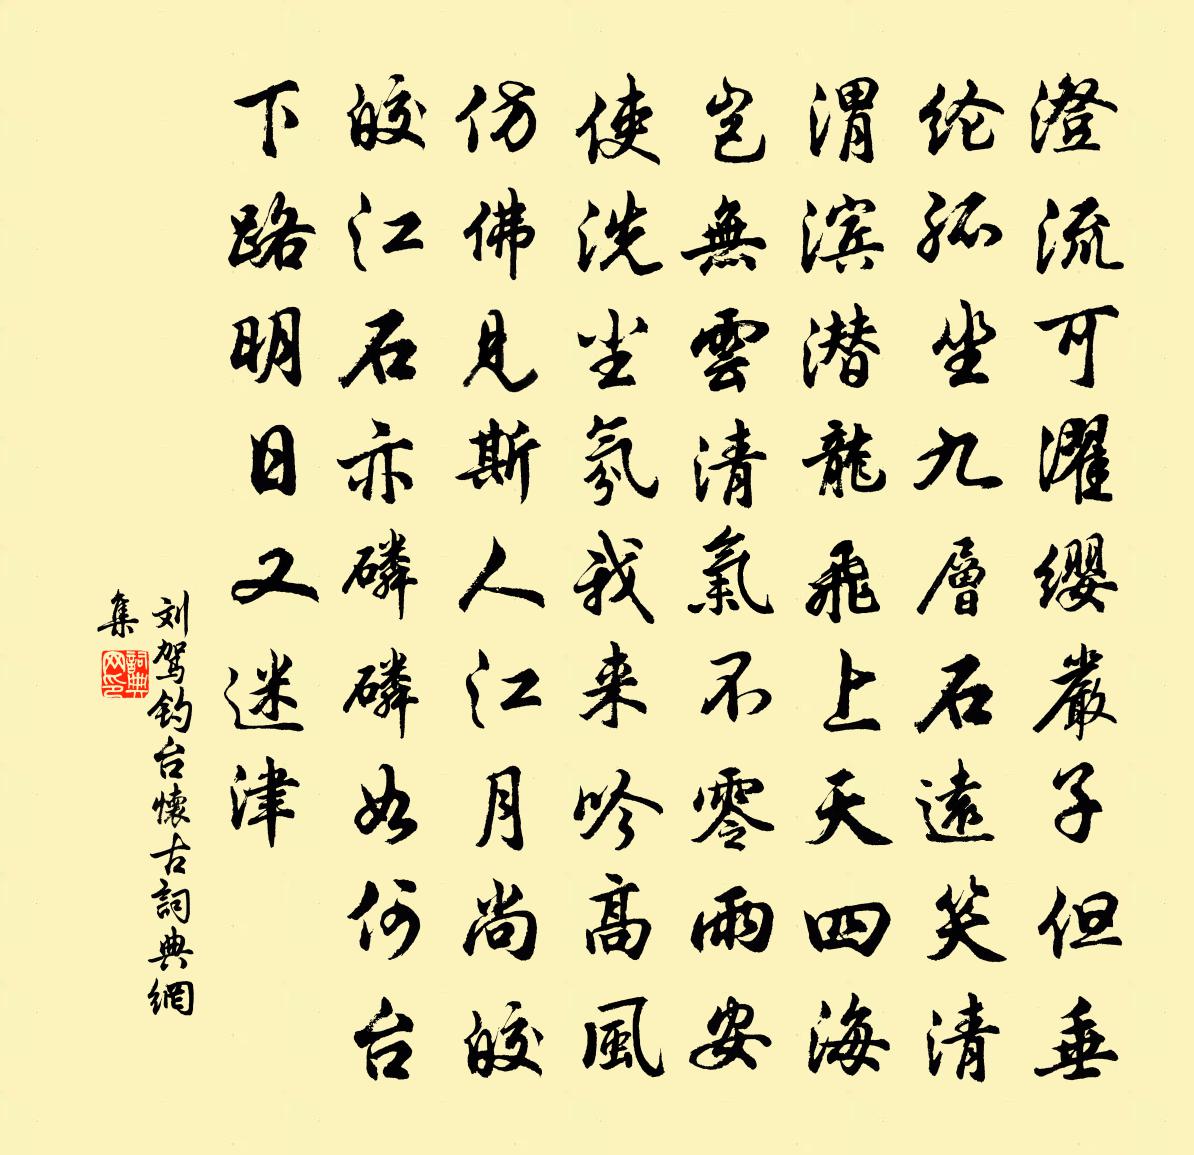 澄流可濯缨嚴子但垂
纶孤坐九層石遠笑清
渭滨潜龍飛上天四海
岂無雲清氣不零雨安
使洗尘氛我来吟高風
仿佛見斯人江月尚皎
皎江石亦磷磷如何台
下路明日又迷津
刘驾钓台懷古詞典網
集
詞典
网印